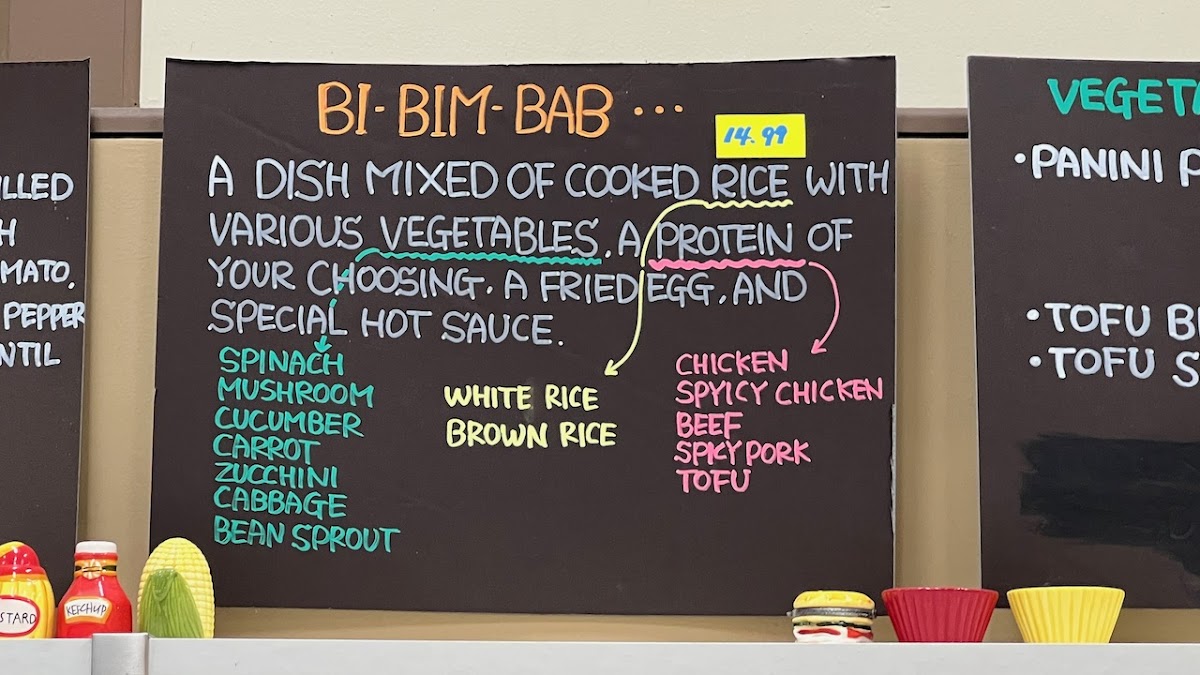 ILLED
H
MATO.
PEPPER
NTIL
BI-BIM-BAB...
14.99
A DISH MIXED OF COOKED RICE WITH
VARIOUS VEGETABLES. A PROTEIN OF
YOUR CHOOSING. A FRIED EGG. AND
SPECIAL HOT SAUCE.
SPINACH
MUSHROOM
CUCUMBER
CARROT
ZUCCHINI
CABBAGE
BEAN SPROUT
WHITE RICE
BROWN RICE
CHICKEN
SPYICY CHICKEN
BEEF
SPICY PORK
TOFU
VEGETA
•PANINI P
•TOFU B
•TOFU S
STARD
KETCHUP